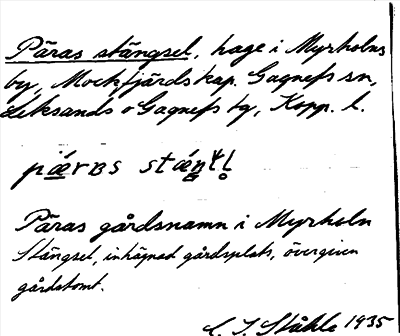 Päras stängsel, hage i Myrholns
by, Mockfjärds kap. Gagnefs sn,
Leksands o Gagnefs tg, Kopp. l.
Päras gårdsnamn i Myrholn
Stängsel, inhägnad gårdsplats, övergiven
gårdstomt.
Ståhle 1935